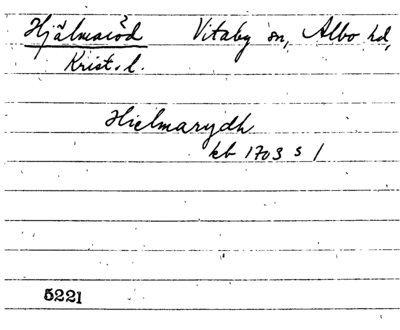 Hjälmaröd Vitaby sn, Albo hd,
Krist. l.
Hielmarydh
kb 1703 s 1
5221